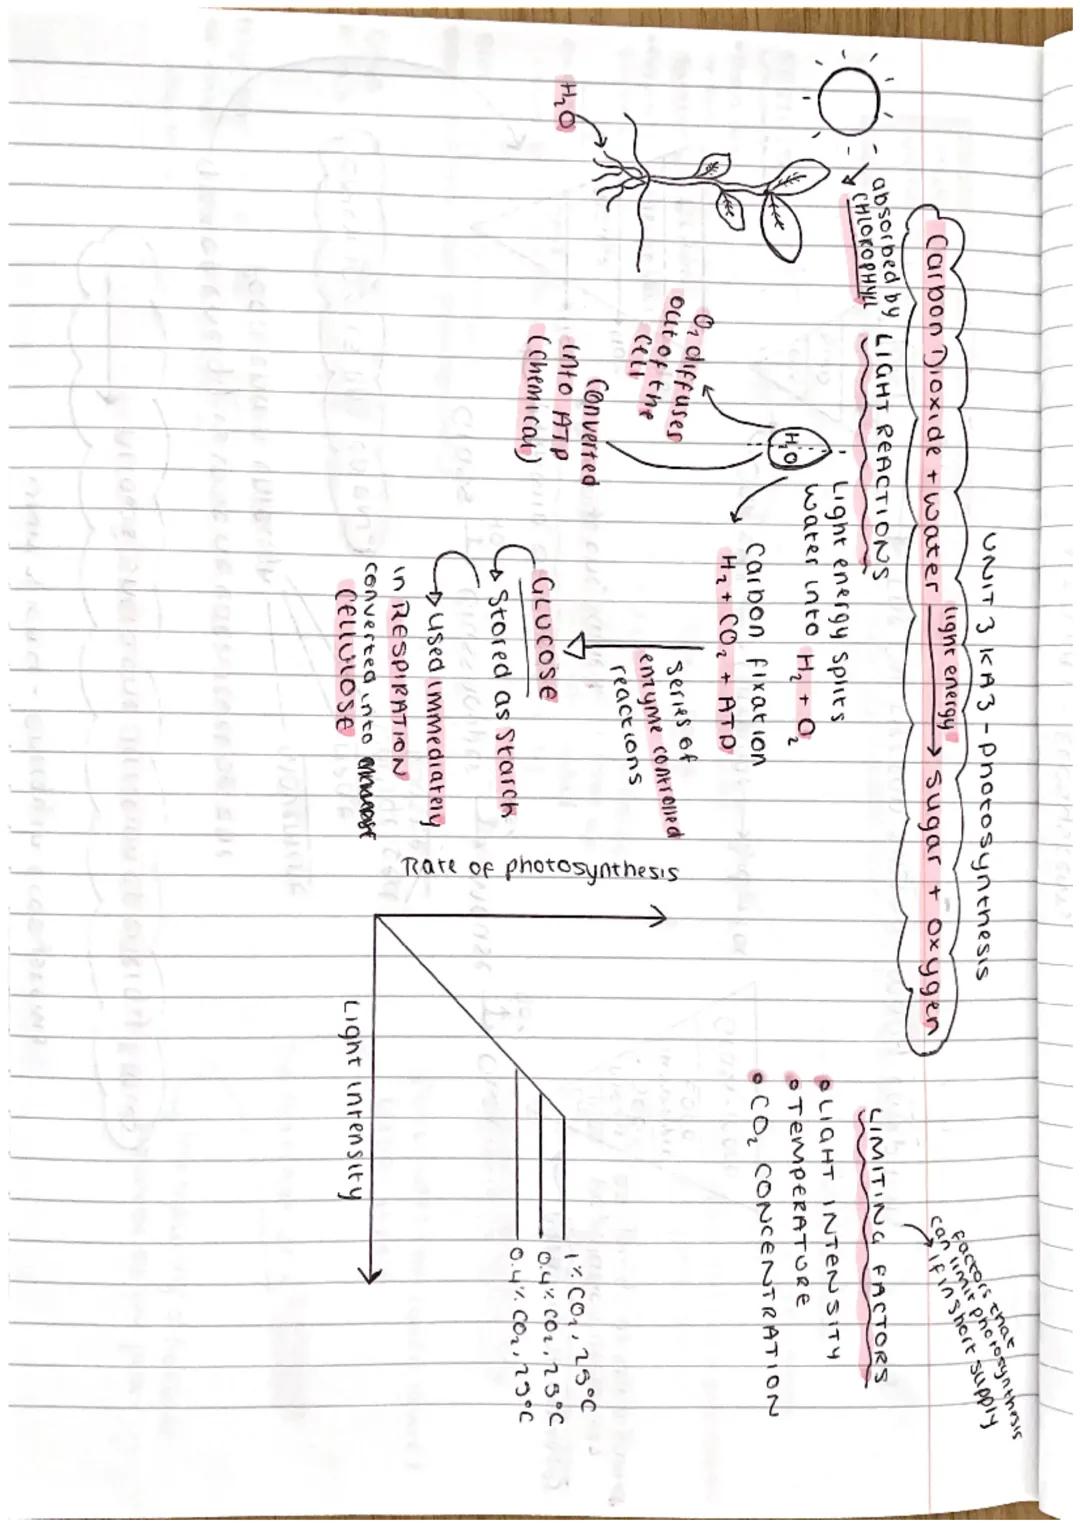 UNIT 3 KA3 - photosynthesis
Carbon Dioxide + water light energy → sugar + oxygen
absorbed by
CHLOROPHYLL
H₂O
LIGHT REACTIONS
Light energy splits
water into H₂ + O₂
H₂O
O₂ diffuses
out of the
cell
Converted
into ATP
(chemical)
Carbon fixation
H₂ + CO₂ + ATP
series of
enzyme controlled
reactions
GLUCOSE
Stored as Starch
used immediately
in RESPIRATION
converted into
CELLULOSE
factors that
can limit photosynthesis
if in short supply
LIMITING FACTORS
• LIGHT INTENSITY
• TEMPERATURE
• CO₂ CONCENTRATION
Rate of photosynthesis
1% CO₂, 25°C
0.4% CO₂, 25°C
0.4% CO₂, 25°C
Light Intensity